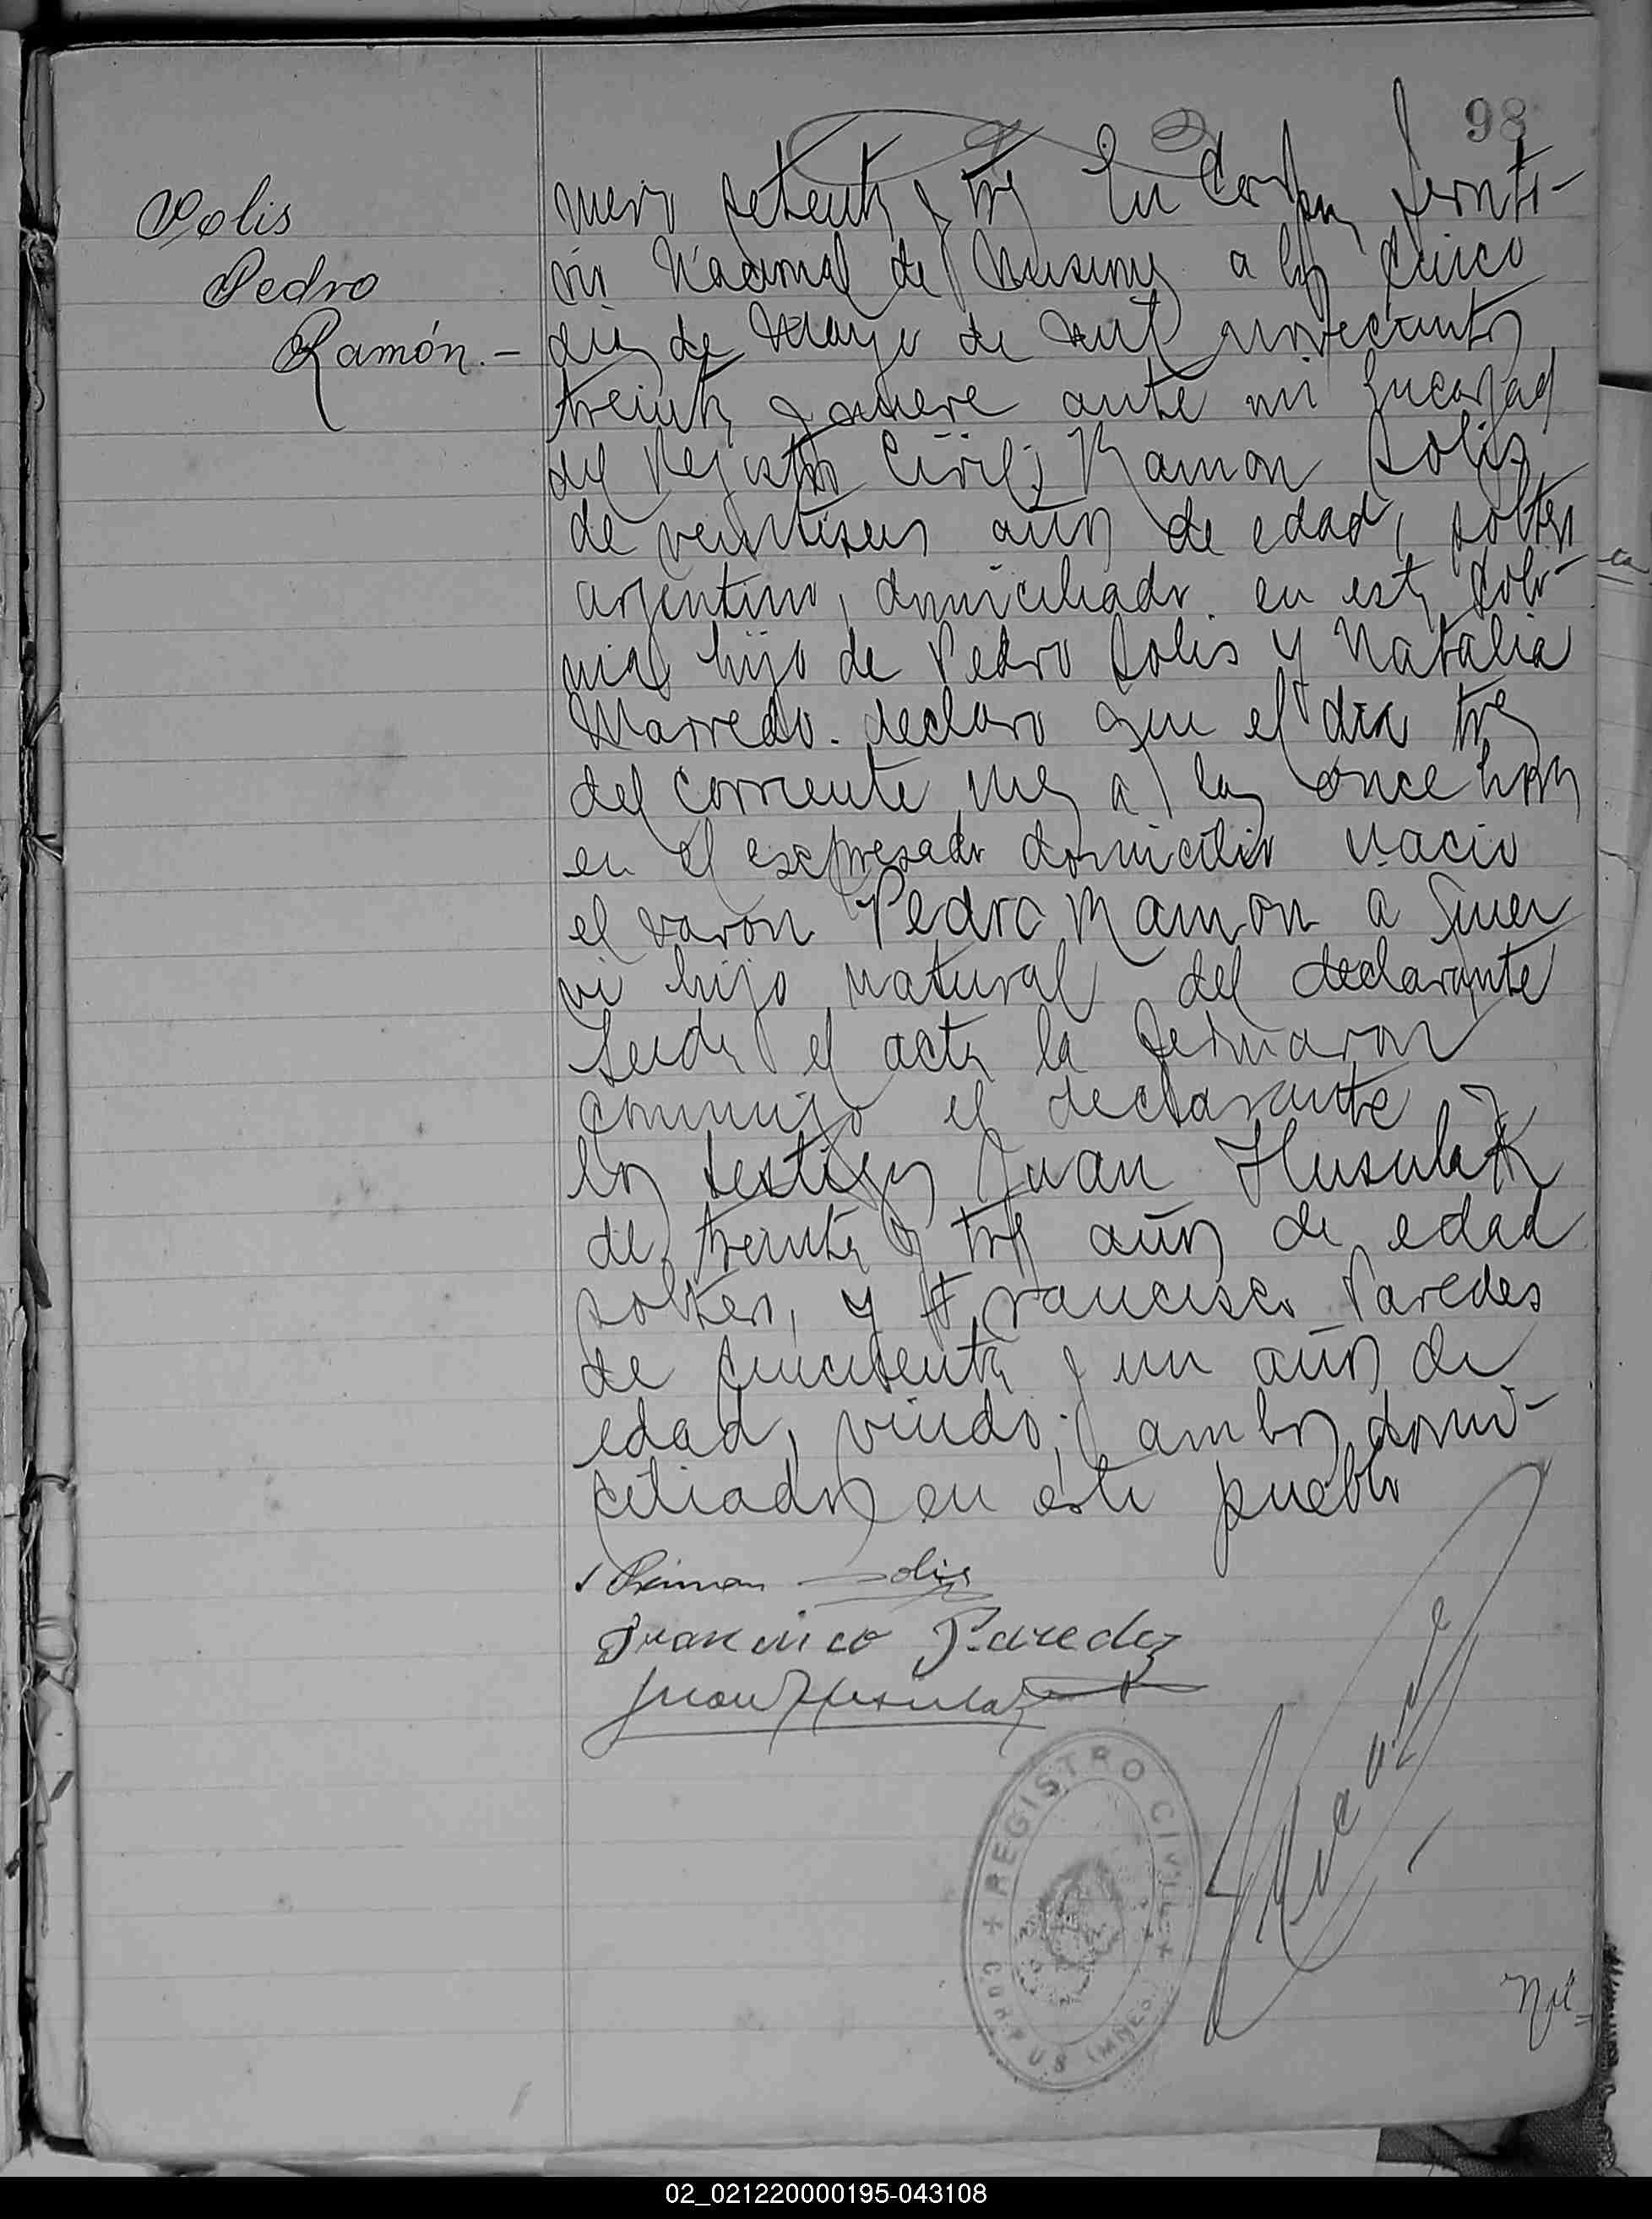 98
Solis
Pedro
Ramón.-
mero setenta y tres En Corpus Territo-
rio Nacional de Misiones a los cinco
dias de Mayo de mil novecientos
treinta y nueve ante mi Encargado
del Registro Civil; Ramon Solis
de veintiseis años de edad, soltero
argentino, domiciliado en esta Colo-
nia hijo de Pedro Solis y Natalia
declaro que el dia tres
del corriente mes a las once horas
en el expresado domicilio nacio
el varon Pedro Ramon a quien
vi hijo natural del declarante
Leida el acta la firmaron
conmigo el declarante y
los testigos Juan Husulak
de treinta y tres años de edad
soltero, y Francisco Paredes
de cincuenta y un años de
edad, viudo; ambos domi-
ciliados en este pueblo
Ramon Solis
Francisco Paredez
Juan Husulak
REGISTRO CIVIL
CORPUS (MNES)
Nú=
02_021220000195-043108